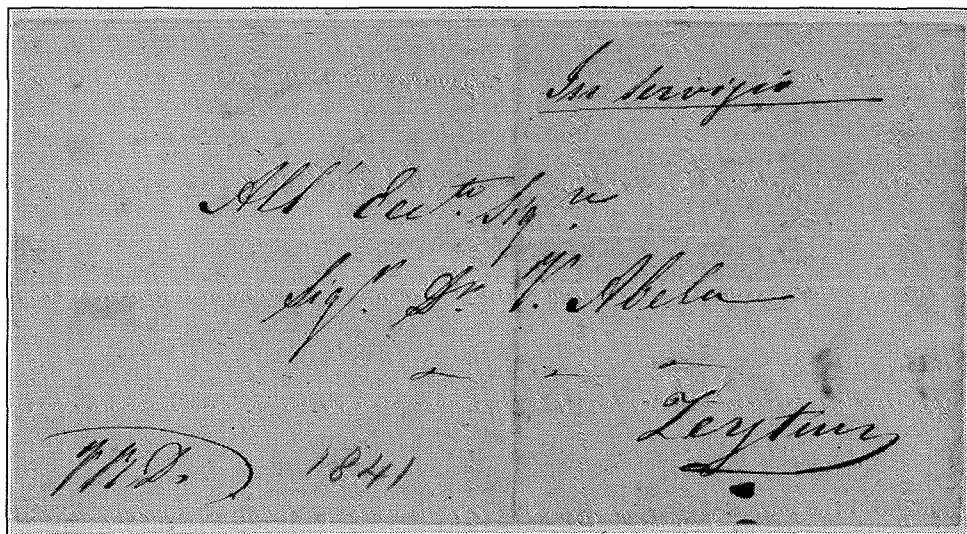 In Servizio
All' Ecc.te Sig.re
Sig.r Dr. V. Abela
Zeytun
1841